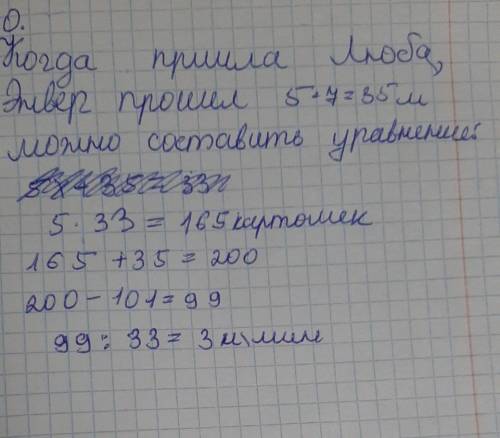 0.
Когда пришла Люба,
Энвер прошел 5·7=35м
можно составить уравнение:
5·33 = 165 картошек
165 + 35 = 200
200 - 101 = 99
99 : 33 = 3 м\мин